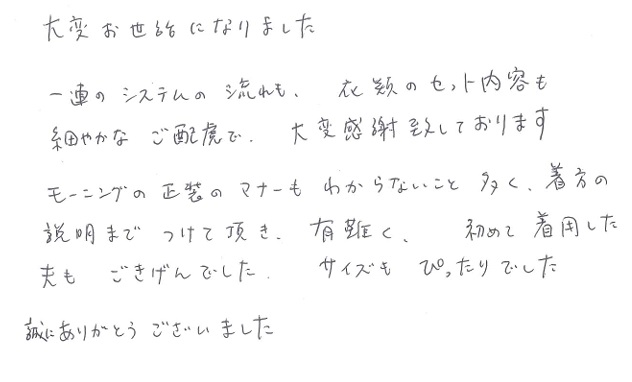 大変お世話になりました
一連のシステムの流れも、衣類のセット内容も
細やかなご配慮で、大変感謝致しております
モーニングの正装のマナーもわからないこと多く、着方の
説明までつけて頂き、有難く、初めて着用した
夫もごきげんでした。サイズもぴったりでした
誠にありがとうございました